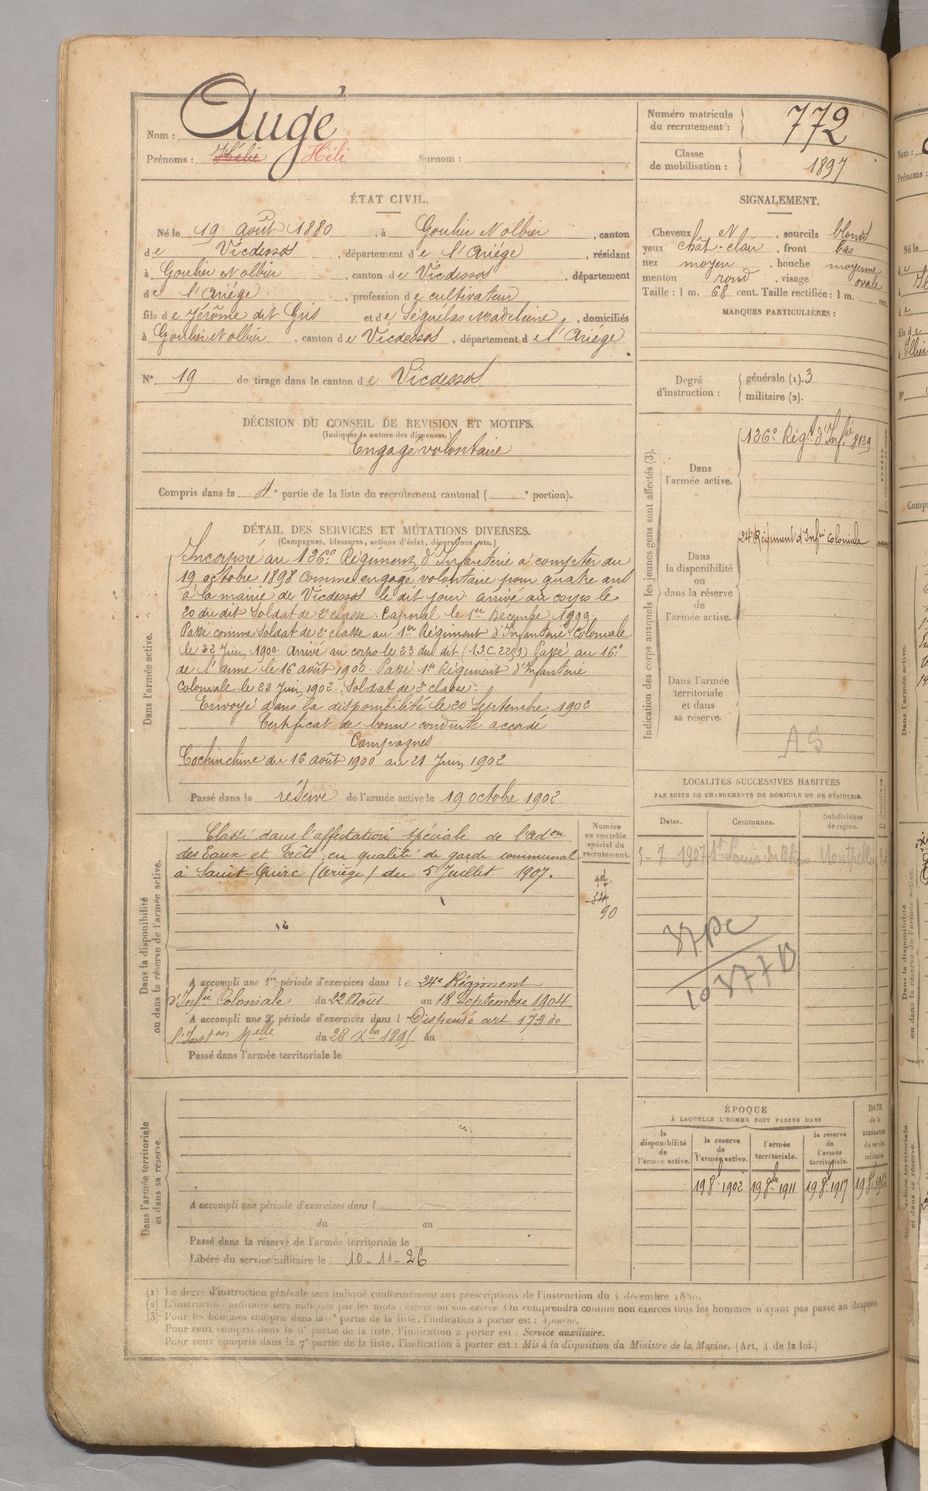 Nom : Augé
Prénoms : Hélie Héli Surnom :
Numéro matricule du recrutement : 772
Classe de mobilisation : 1897
ÉTAT CIVIL.
Né le 19 août 1880, à Goulier N olbier, canton
de Vicdessos, département de l'Ariége, résidant
à Goulier N olbier, canton de Vicdessos, département
de l'Ariége, profession de cultivateur
fils de Jérôme dit Gris et de Séguélas Madeleine, domiciliés
à Goulier N olbier, canton de Vicdessos, département de l'Ariége
N° 19 de tirage dans le canton de Vicdessos
SIGNALEMENT.
Cheveux N, sourcils blonds
yeux chât-clair, front bas
nez moyen, bouche moyenne
menton rond, visage ovale
Taille : 1 m. 68 cent. Taille rectifiée : 1 m. cent.
MARQUES PARTICULIÈRES :
Degré d'instruction : générale (1). 3
militaire (2).
DÉCISION DU CONSEIL DE REVISION ET MOTIFS.
(Indiquer la nature des dispenses.)
Engagé volontaire
Compris dans la 4e partie de la liste du recrutement cantonal ( e portion).
DÉTAIL DES SERVICES ET MUTATIONS DIVERSES.
(Campagnes, blessures, actions d'éclat, décorations, etc.)
Dans l'armée active.
Incorporé au 126e Régiment d'Infanterie à compter du
19 octobre 1898 comme engagé volontaire pour quatre ans
à la mairie de Vicdessos le dit jour. arrivé au corps le
20 du dit Soldat de 2e classe. Caporal le 1er Décembre 1899
Passé comme Soldat de 2e classe au 1er Régiment d'Infanterie Coloniale
le 22 Juin 1900. Arrivé au corps le 23 du dit Passé au 16e
de l'arme le 16 août 1900. Passé 1er Régiment d'Infanterie
Coloniale le 22 Juin 1902. Soldat de 2e classe.
Envoyé dans la disponibilité le 20 Septembre 1902
Certificat de bonne conduite accordé
Campagnes
Cochinchine du 16 août 1900 au 21 Juin 1902
Passé dans la réserve de l'armée active le 19 octobre 1902
Indication des corps auxquels les jeunes gens sont affectés (3).
Dans l'armée active.
126e Régt d'Infie 8129
Dans la disponibilité ou dans la réserve de l'armée active.
24e Régiment d'Infie Coloniale
Dans l'armée territoriale et dans sa réserve.
AS
LOCALITÉS SUCCESSIVES HABITÉES
PAR SUITE DE CHANGEMENTS DE DOMICILE OU DE RÉSIDENCE.
Dates. Communes. Subdivision de région.
5-7-1907 St Louis du Rhône Montpellier
Dans la disponibilité ou dans la réserve de l'armée active.
Classé dans l'affectation spéciale de l'adon
des Eaux et Forêts, en qualité de garde communal
à Saint-Quirc (Ariége) du 5 Juillet 1907.
Numéro au contrôle spécial du recrutement.
90
A accompli une 1re période d'exercices dans le 24e Régiment
d'Infie Coloniale du 22 Août au 18 Septembre 1904
A accompli une 2e période d'exercices dans l Dispensé art 173 de
l'Inston Melle du 28 Xbre 1895 au
Passé dans l'armée territoriale le
ÉPOQUE
À LAQUELLE L'HOMME DOIT PASSER DANS
la disponibilité de l'armée active. la réserve de l'armée active. l'armée territoriale. la réserve de l'armée territoriale. DATE de la LIBÉRATION du service militaire.
19 8bre 1902 19 8bre 1911 19 8bre 1917
Dans l'armée territoriale et dans sa réserve.
A accompli une période d'exercices dans l
du au
Passé dans la réserve de l'armée territoriale le
Libéré du service militaire le 10-11-26
(1) Le degré d'instruction générale sera indiqué conformément aux prescriptions de l'instruction du 4 décembre 1889.
(2) L'instruction militaire sera indiquée par les mots : exercé ou non exercé. On comprendra comme non exercés tous les hommes n'ayant pas passé au drapeau.
(3) Pour les hommes compris dans la partie de la liste, l'indication à porter est : Ajourné.
Pour ceux compris dans la 6e partie de la liste, l'indication à porter est : Service auxiliaire.
Pour ceux compris dans la 7e partie de la liste, l'indication à porter est : Mis à la disposition du Ministre de la Marine. (Art. 4 de la loi.)